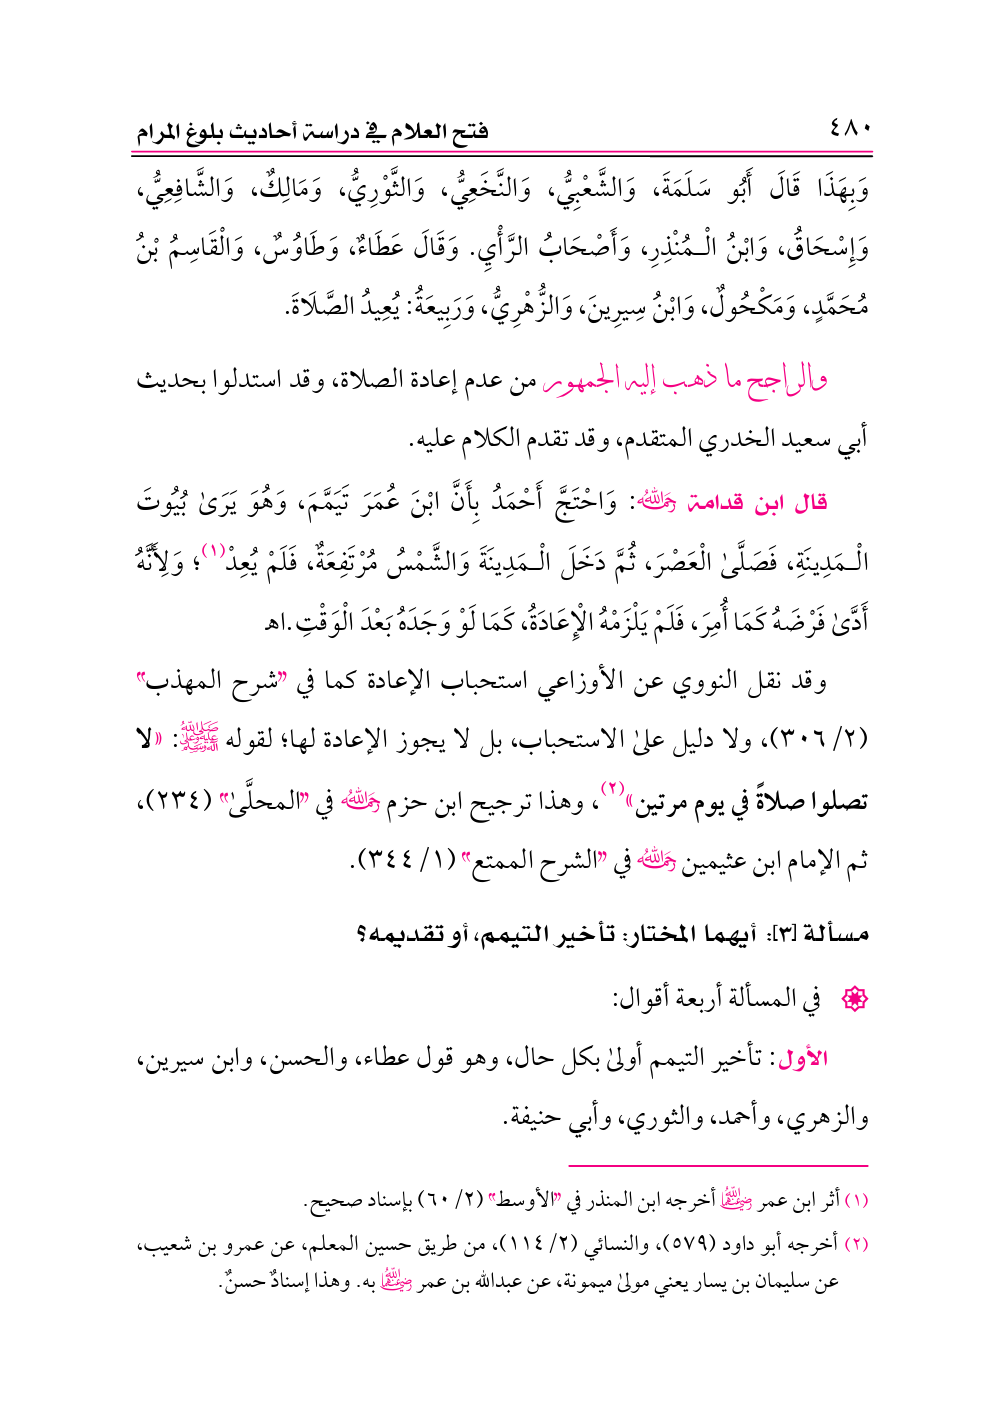 ٤٨٠ فتح العلام في دراسة أحاديث بلوغ المرام
وَبِهَذَا قَالَ أَبُو سَلَمَةَ، وَالشَّعْبِيُّ، وَالنَّخَعِيُّ، وَالثَّوْرِيُّ، وَمَالِكٌ، وَالشَّافِعِيُّ،
وَإِسْحَاقُ، وَابْنُ الْـمُنْذِرِ، وَأَصْحَابُ الرَّأْيِ. وَقَالَ عَطَاءٌ، وَطَاوُسٌ، وَالْقَاسِمُ بْنُ
مُحَمَّدٍ، وَمَكْحُولٌ، وَابْنُ سِيرِينَ، وَالزُّهْرِيُّ، وَرَبِيعَةُ: يُعِيدُ الصَّلَاةَ.
والراجح ما ذهب إليه الجمهور من عدم إعادة الصلاة، وقد استدلوا بحديث
أبي سعيد الخدري المتقدم، وقد تقدم الكلام عليه.
قال ابن قدامة رحمه الله: وَاحْتَجَّ أَحْمَدُ بِأَنَّ ابْنَ عُمَرَ تَيَمَّمَ، وَهُوَ يَرَىٰ بُيُوتَ
الْـمَدِينَةِ، فَصَلَّىٰ الْعَصْرَ، ثُمَّ دَخَلَ الْـمَدِينَةَ وَالشَّمْسُ مُرْتَفِعَةٌ، فَلَمْ يُعِدْ(١)؛ وَلِأَنَّهُ
أَدَّىٰ فَرْضَهُ كَمَا أُمِرَ، فَلَمْ يَلْزَمْهُ الْإِعَادَةُ، كَمَا لَوْ وَجَدَهُ بَعْدَ الْوَقْتِ.اهـ
وقد نقل النووي عن الأوزاعي استحباب الإعادة كما في "شرح المهذب"
(٢/ ٣٠٦)، ولا دليل علىٰ الاستحباب، بل لا يجوز الإعادة لها؛ لقوله ﷺ: «لا
تصلوا صلاةً في يوم مرتين»(٢)، وهذا ترجيح ابن حزم رحمه الله في "المحلَّىٰ" (٢٣٤)،
ثم الإمام ابن عثيمين رحمه الله في "الشرح الممتع" (١/ ٣٤٤).
مسألة [٣]: أيهما المختار: تأخير التيمم، أو تقديمه؟
في المسألة أربعة أقوال:
الأول: تأخير التيمم أولىٰ بكل حال، وهو قول عطاء، والحسن، وابن سيرين،
والزهري، وأحمد، والثوري، وأبي حنيفة.
(١) أثر ابن عمر رضي الله عنهما أخرجه ابن المنذر في "الأوسط" (٢/ ٦٠) بإسناد صحيح.
(٢) أخرجه أبو داود (٥٧٩)، والنسائي (٢/ ١١٤)، من طريق حسين المعلم، عن عمرو بن شعيب،
عن سليمان بن يسار يعني مولىٰ ميمونة، عن عبدالله بن عمر رضي الله عنهما به. وهذا إسنادٌ حسنٌ.